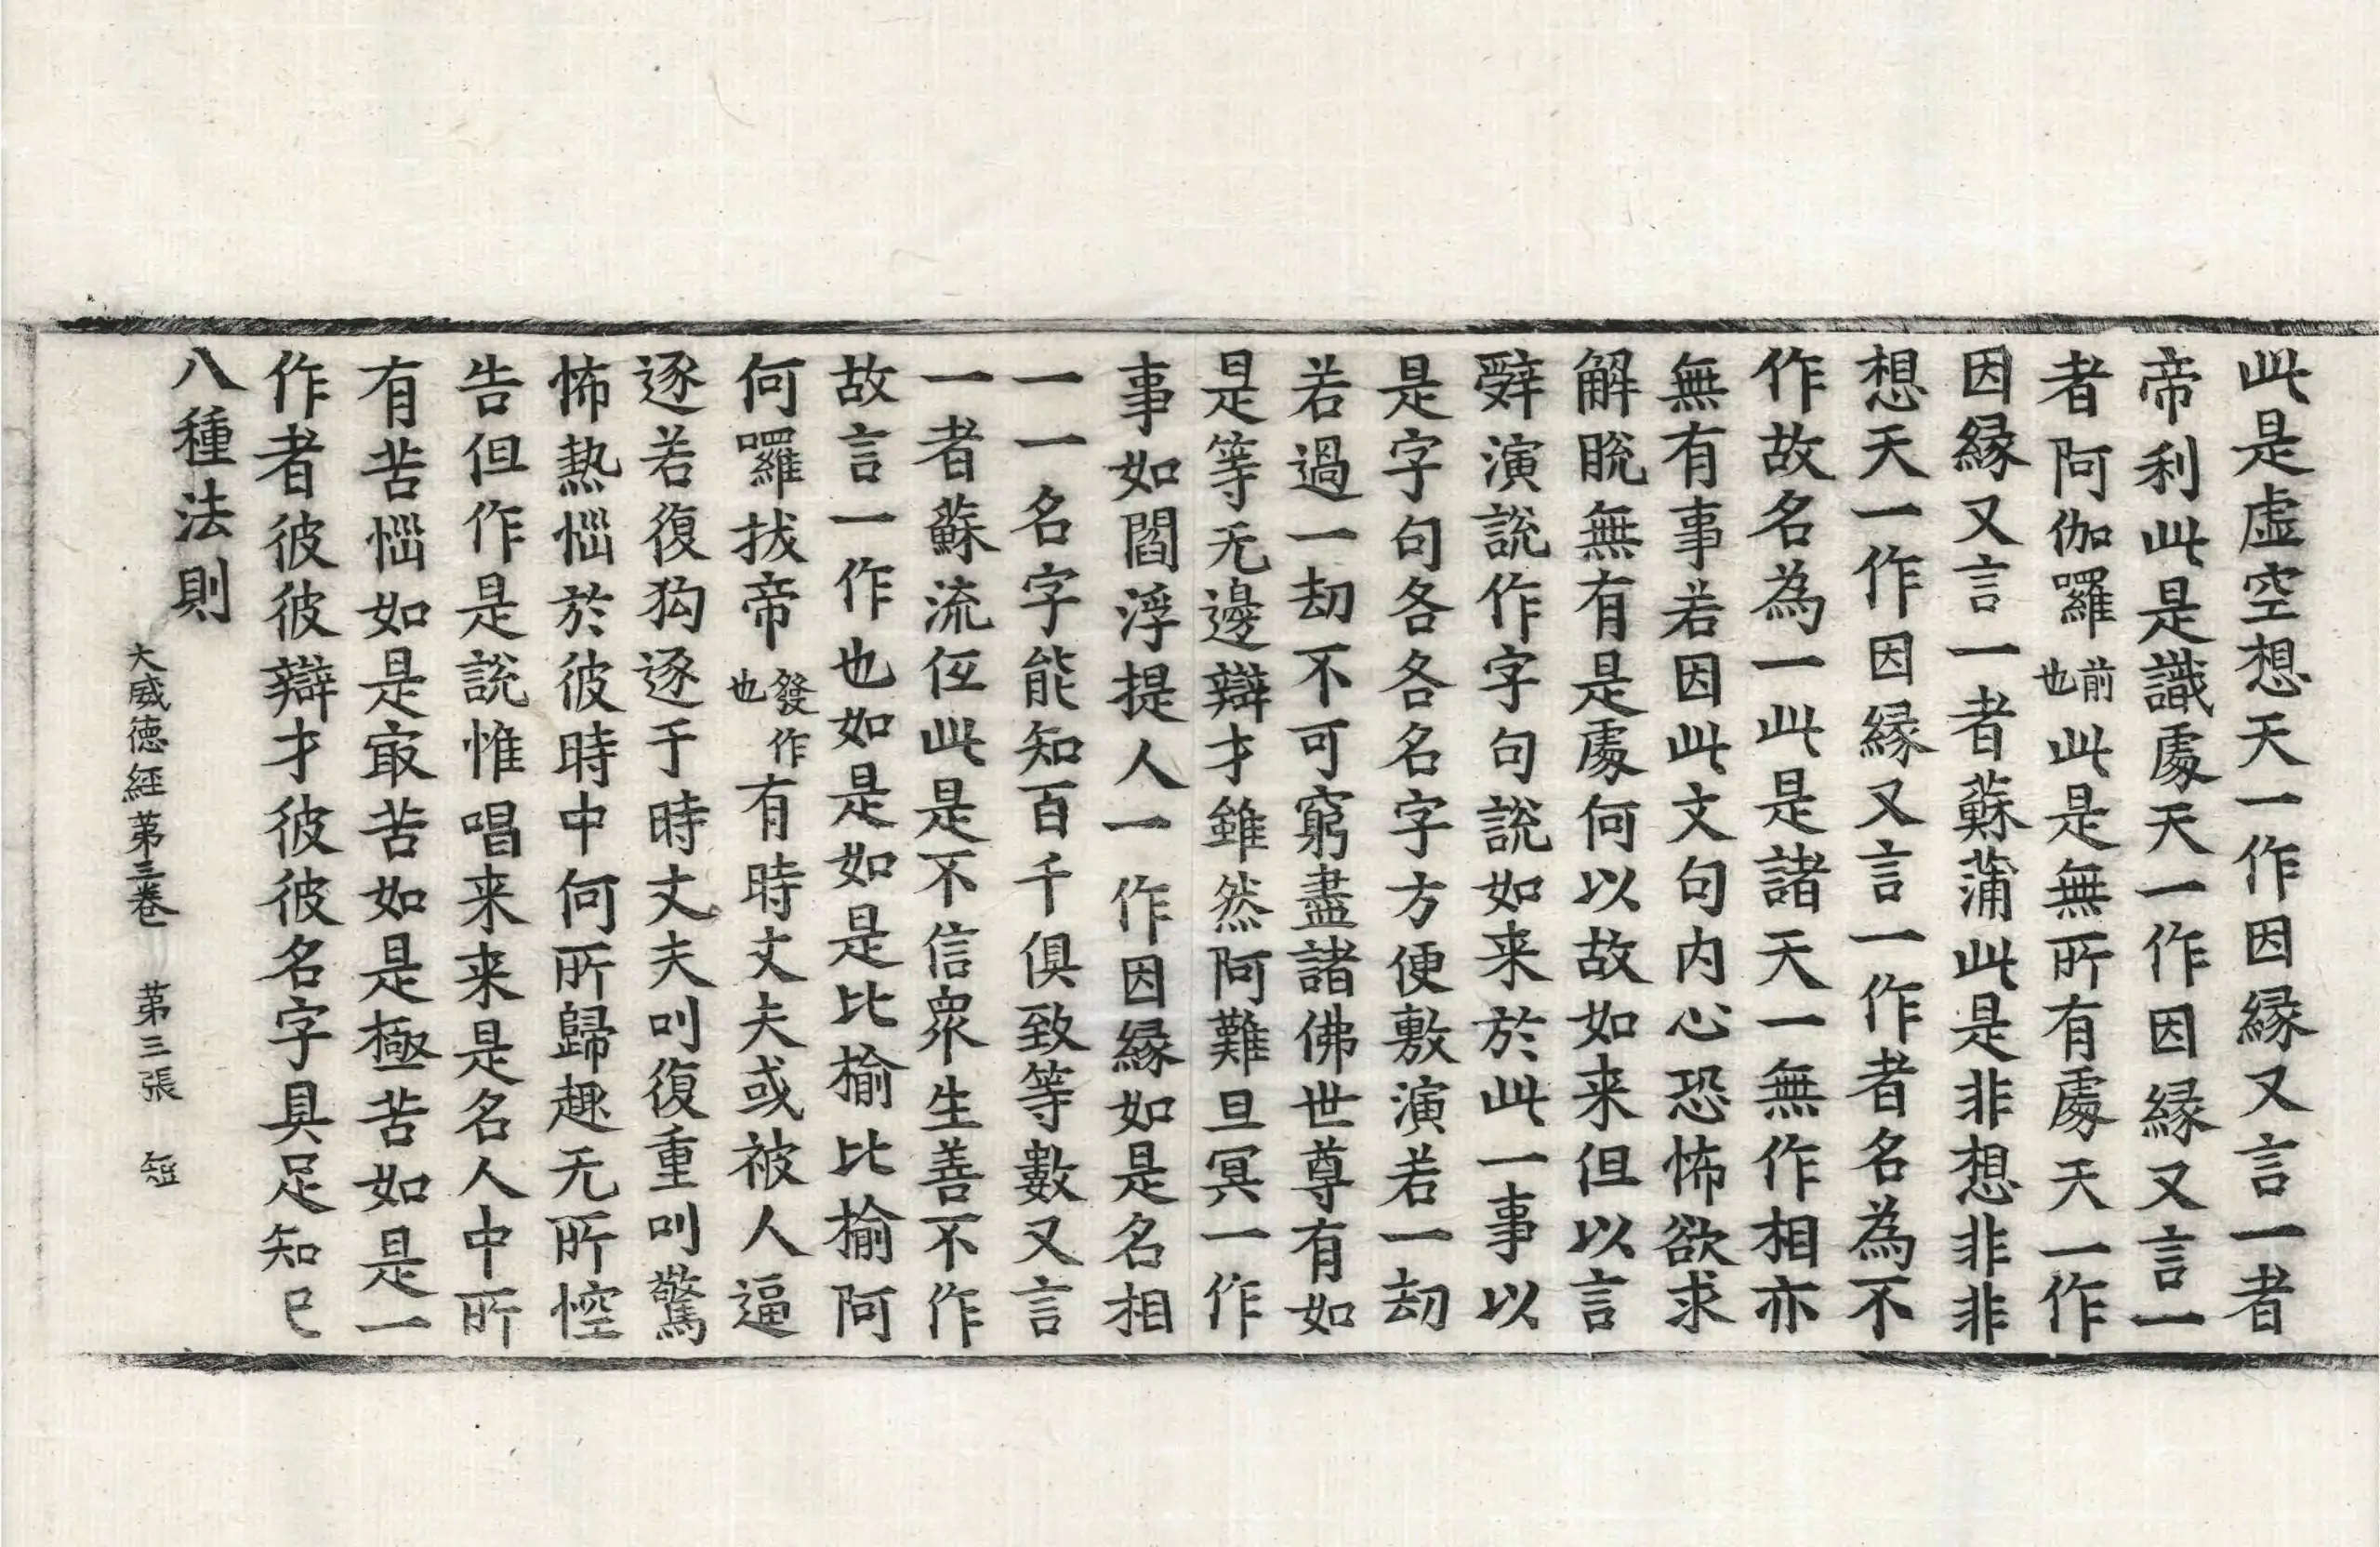 此是虛空想天一作因縁又言一者
帝利此是識處天一作因縁又言一
者阿伽囉前也此是無所有處天一作
因縁又言一者蘇蒲此是非想非非
想天一作因縁又言一作者名為不
作故名為一此是諸天一無作相亦
無有事若因此文句内心恐怖欲求
解脫無有是處何以故如来但以言
辝演說作字句說如来於此一事以
是字句各各名字方便敷演若一劫
若過一劫不可窮盡諸佛世尊有如
是等无邊辯才雖然阿難旦冥一作
事如閻浮提人一作因縁如是名相
一一名字能知百千俱致等數又言
一者蘇流伍此是不信眾生善不作
故言一作也如是如是比榆比榆阿
何囉拔帝發作也有時丈夫或被人逼
逐若復狗逐于時丈夫叫復重叫驚
怖熱惱於彼時中何所歸趣无所控
告但作是說惟唱来来是名人中所
有苦惱如是㝡苦如是極苦如是一
作者彼彼辯才彼彼名字具足知已
八種法則
大威德經第三卷 第三張 短